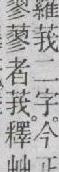 羅莪二字今正
蓼蓼者莪釋艸